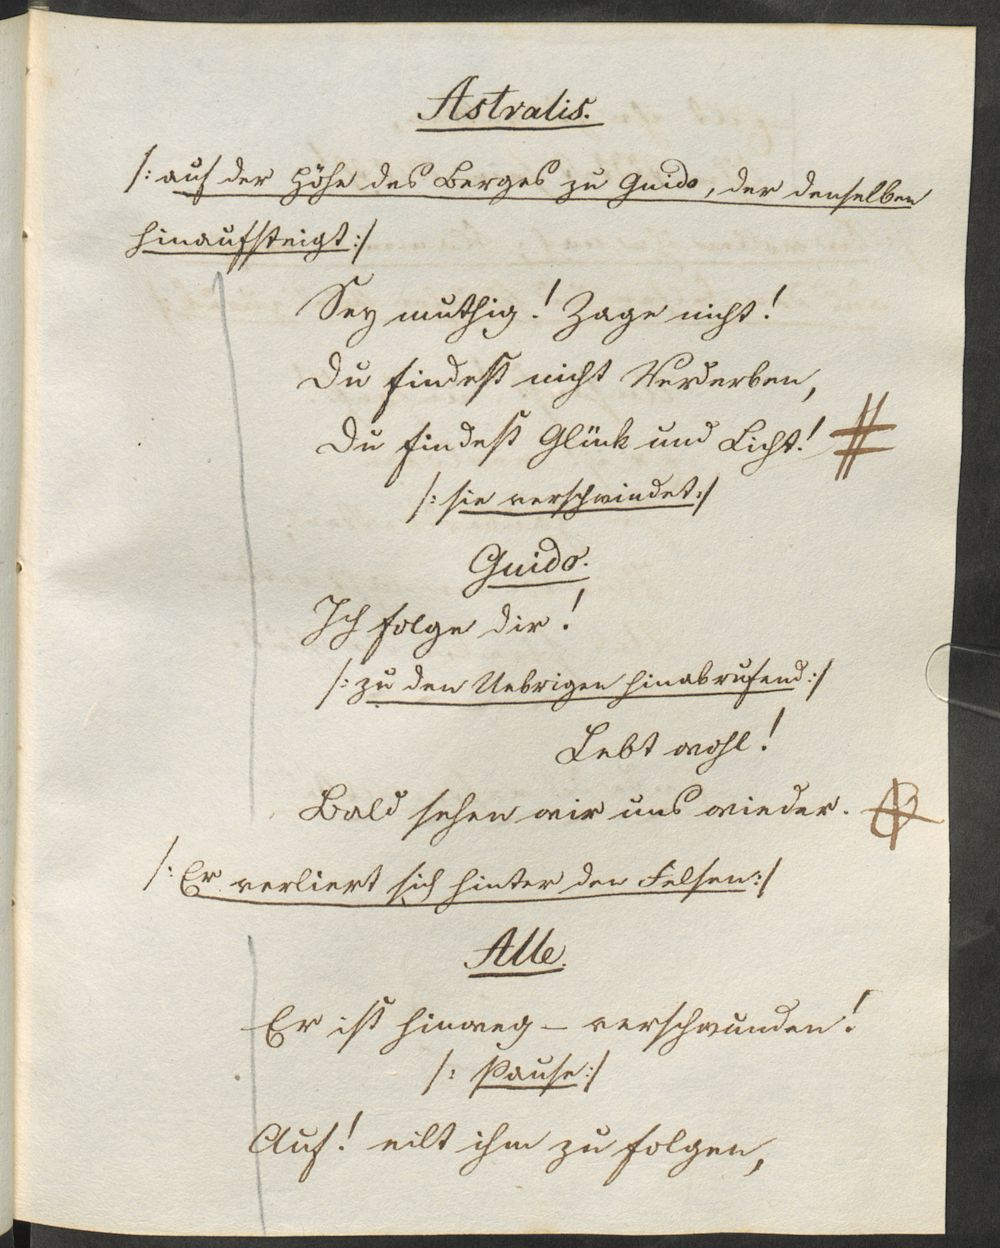 Astralis.
/: auf der Höhe des Berges zu Guido, der denselben
hinaufsteigt :/
Sey muthig! Zage nicht!
Du findest nicht Verderben,
Du findest Glück und Licht! #
/: sie verschwindet :/
Guido.
Ich folge dir!
/: zu den Uebrigen hinabrufend :/
Lebt wohl!
Bald sehen wir uns wieder.
/: Er verliert sich hinter den Felsen :/
Alle.
Er ist hinweg – verschwunden!
/: Pause :/
Auf! eilt ihm zu folgen,